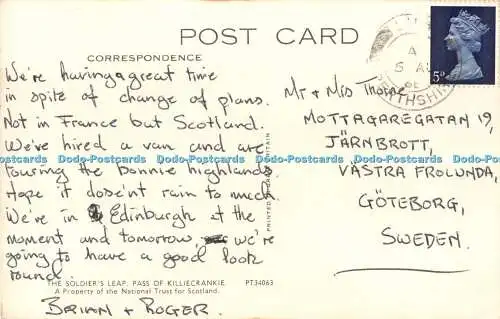 POST CARD
CORRESPONDENCE
We're having a great time
in spite of change of plans.
Not in France but Scotland.
We've hired a van and are
touring the bonnie highlands.
Hope it dose'nt rain to much.
We're in Edinburgh at the
moment and tomorrow we're
going to have a good look
round.
BRIAN + ROGER.
THE SOLDIER'S LEAP, PASS OF KILLIECRANKIE. PT34063
A Property of the National Trust for Scotland.
PRINTED IN GREAT BRITAIN
Mr + Mrs Thorpe
MOTTAGAREGATAN 19,
JÄRNBROTT,
VÄSTRA FROLUNDA,
GÖTEBORG,
SWEDEN.
A
5 AU
PERTHSHIRE
5D
Dodo-Postcards Dodo-Postcards Dodo-Postcards Dodo-Postcards Dodo-Postcards Dodo-Postcards